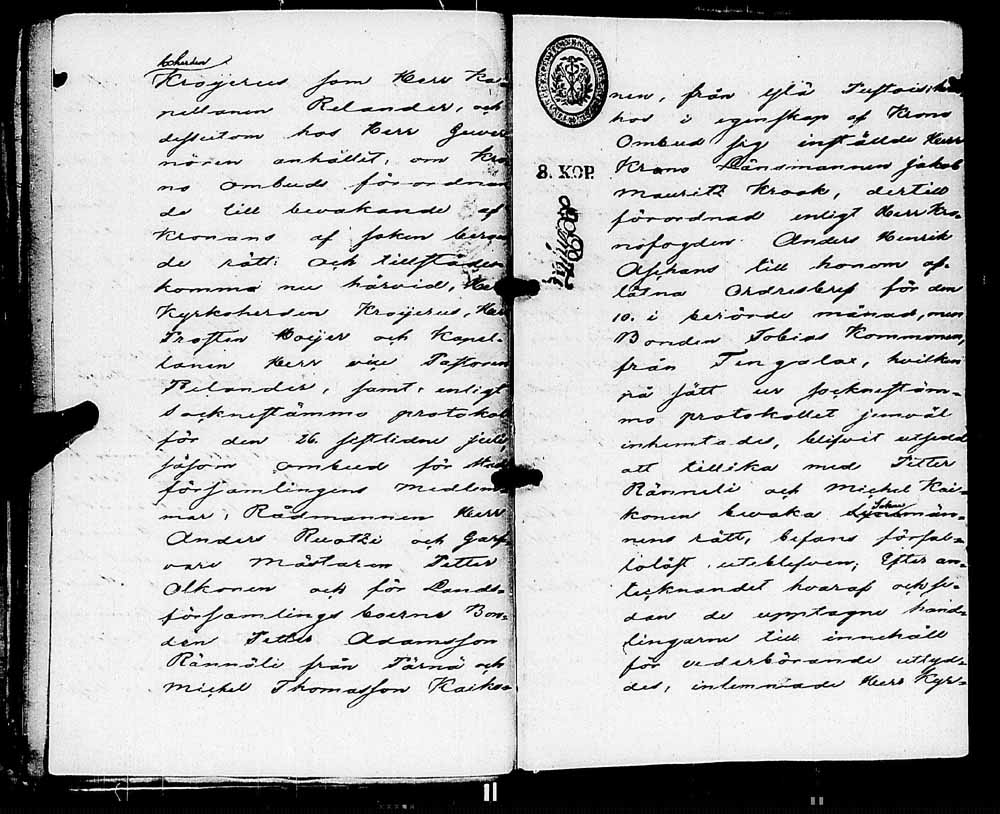 koherden
Krogerus som Herr Ka-
pellanen Relander, och
dessutom hos Herr Guver
nören anhållit, om Kro
no ombuds förordnan
de till bevakande af
Kronans af saken beroen
de rätt: och tillstädes
komma nu härvid, Herr
Kyrkoherden Krogerus, Herr
Prosten Hoijer och Kapel-
lanen Herr vice Pastoren
Relander, samt, enligt
Sockneståmmo protokoll
för den 26. sestlidne Julii,
såsom ombud för Stads
församlingens Medlem-
mar, Rådmannen Herr
Anders Ruotzi och Garf
vare Mästaren Petter
Alkonen och för Lands-
församlings boerne Bon-
den Petter Adamsson
Rännäli från Tärnä och
Michel Thomasson Kaiko-
8. KOP.
nen, från Ylä
hos i egenskap af Krono
Ombud sig inställde Herr
Krono Länsmannen Jakob
Mauritz Krook, dertill
förordnad enligt Herr Kro-
nofogden Anders Henrik
Ashans till honom af-
låtna Ordresbref för den
10. i berörde månad, men
Bonden Tobias Kommonen,
från Tengalax, hvilken
på sätt ur sockneståm-
mo protokollet jemväl
inhemtades, blifvit utsedd
att tillika med Petter
Rännäli och Michel Kai-
konen bevaka Sokne
män-
nens rätt, befans förfal-
lolöst utebliven; Efter an-
tecknandet hvaraf och se-
dan de upptagne hand-
lingarne till innehåll
för vederbörande uttyd-
des, inlemnade Herr Kyr-